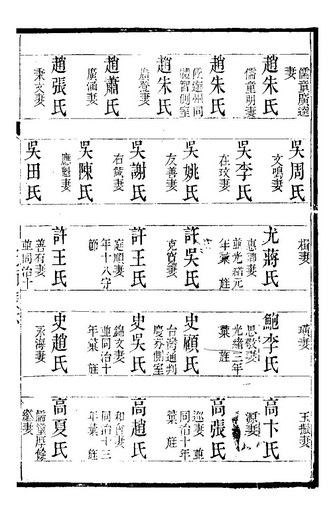 儒童廣達
妻
趙朱氏
儒童明妻
趙朱氏
候選州同
體智側室
趙朱氏
廣譽妻
趙蕭氏
廣涵妻
趙張氏
秉文妻
吳周氏
文鳴妻
吳李氏
在玟妻
吳姚氏
友善妻
吳謝氏
右箴妻
吳陳氏
應魁妻
吳田氏
楫妻
尤蔣氏
惠疇妻
並光緒元
年彙旌
許吳氏
克寬妻
許王氏
庭順妻
年十八守
節
許王氏
善有妻
並同治十
璜妻
鮑李氏
思敬妻
光緒三年
彙旌
史顧氏
台灣通判
慶芬側室
史吳氏
錦文妻
並同治十
年彙旌
史趙氏
承海妻
玉振妻
高卞氏
源妻
高張氏
妻並
同治十年
彙旌
高趙氏
和尚妻
同治十三
年彙旌
高夏氏
儒童厚修
繼妻